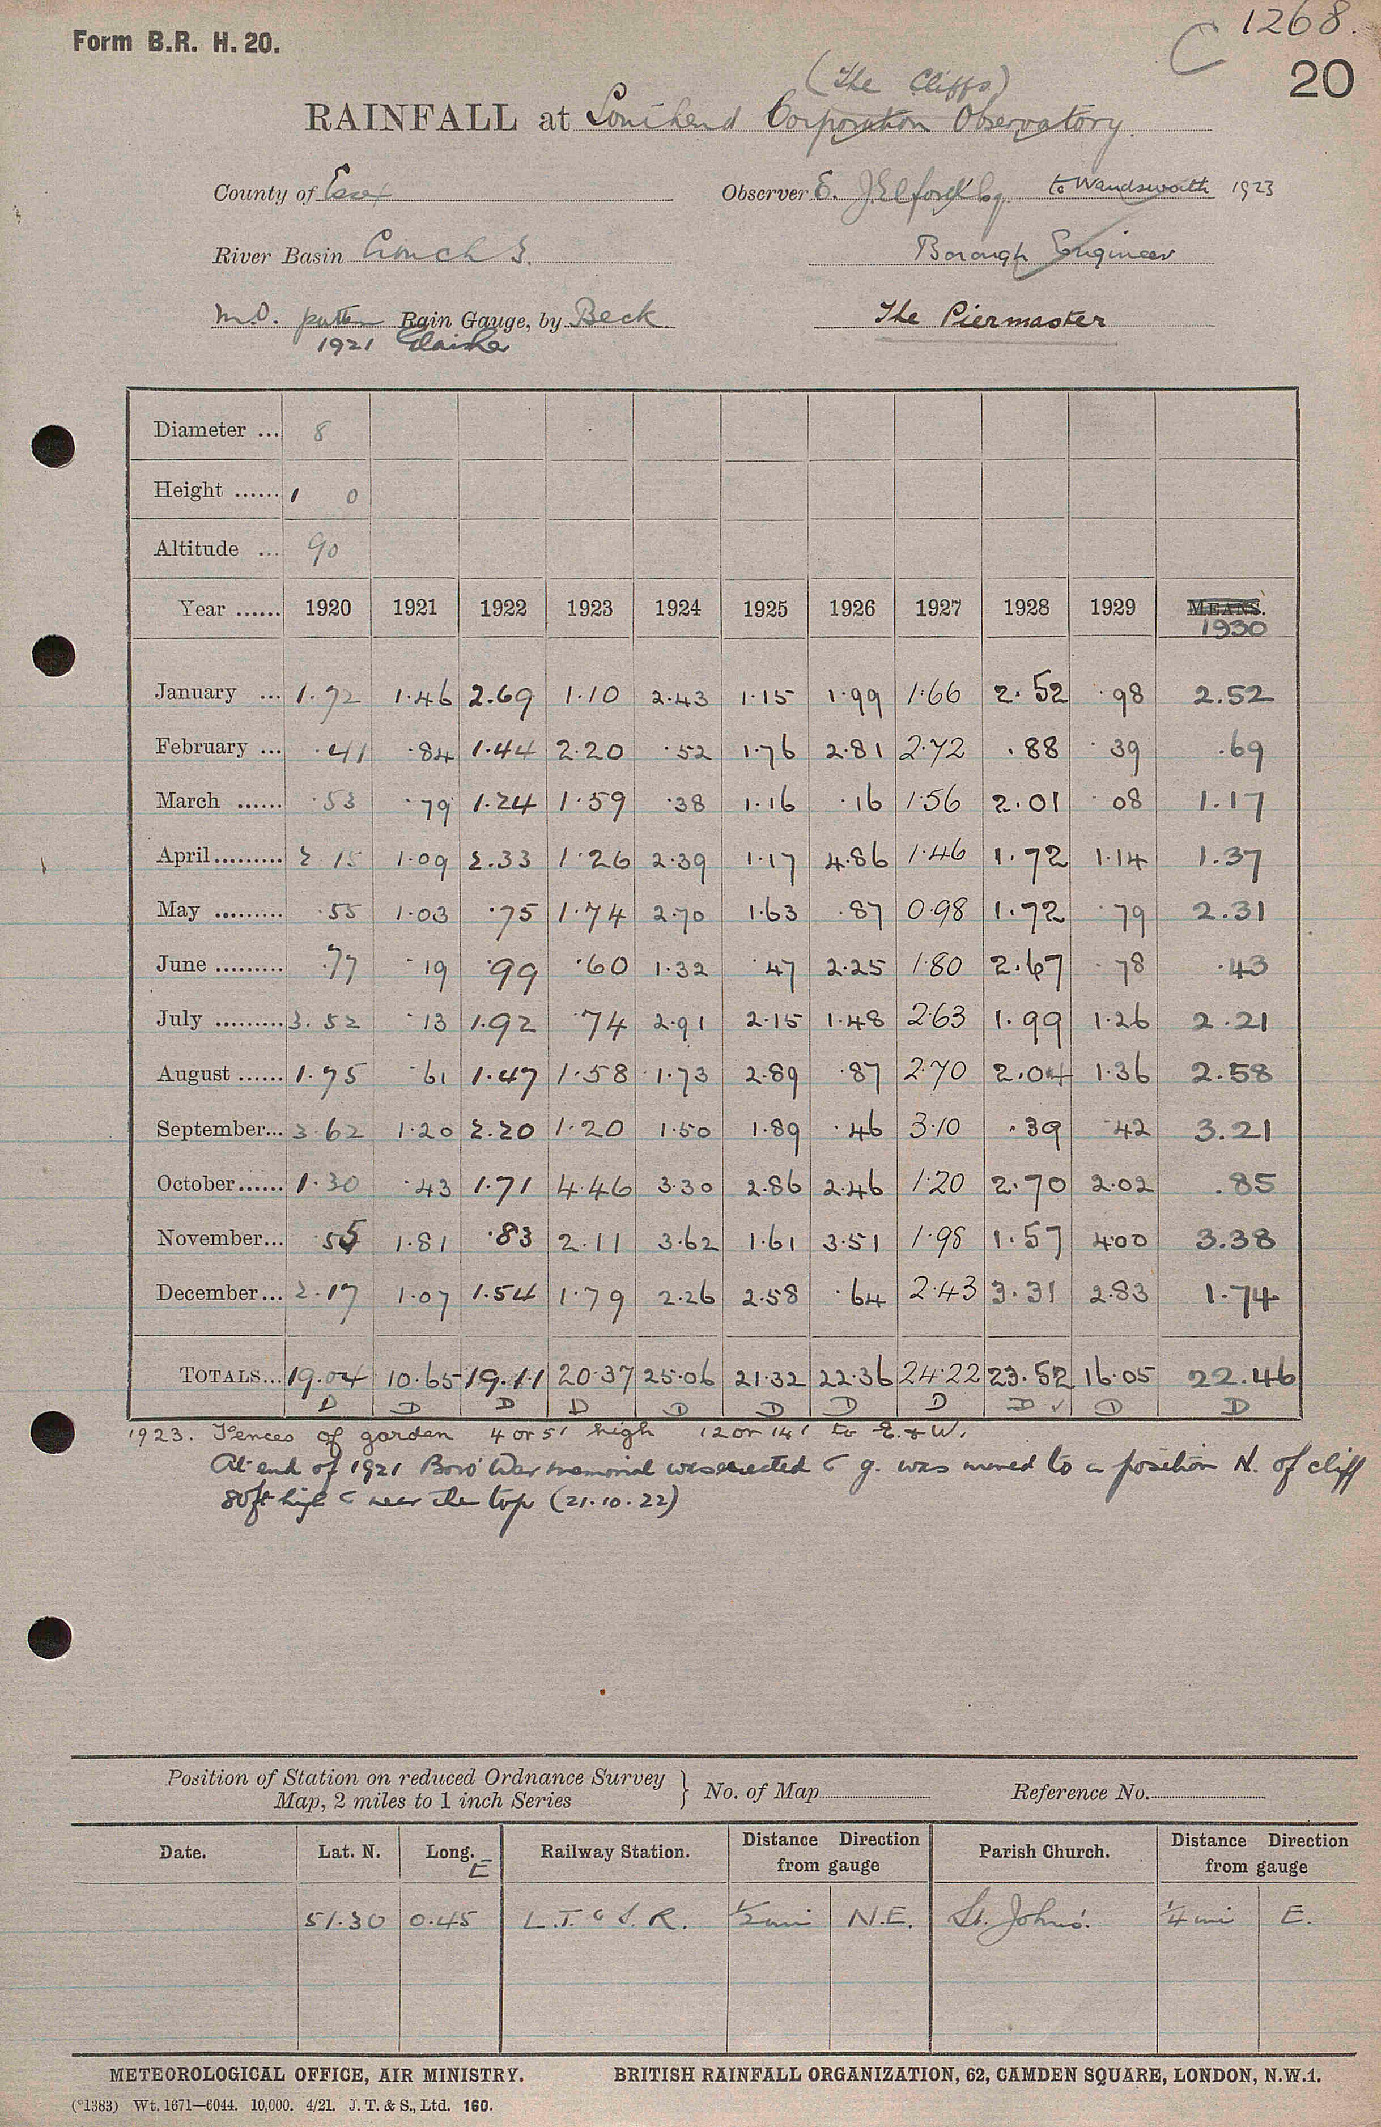 Form B.R. H. 20.
C 1268.
20
(The Cliffs)
RAINFALL at Southend Corporation Observatory
County of Essex Observer E. J. Elford Esq. to Wandsworth 1923
River Basin Crouch S. Borough Engineer
M.O. pattern Rain Gauge, by Beck The Piermaster
1921 Glaisher
Diameter ... 8
Height ...... 1 0
Altitude ... 90
Year ...... 1920 1921 1922 1923 1924 1925 1926 1927 1928 1929 MEANS.
1930
January ... 1.72 1.46 2.69 1.10 2.43 1.15 1.99 1.66 2.52 .98 2.52
February ... .41 .84 1.44 2.20 .52 1.76 2.81 2.72 .88 .39 .69
March ...... .53 .79 1.24 1.59 .38 1.16 .16 1.56 2.01 .08 1.17
April......... 2.15 1.09 2.33 1.26 2.39 1.17 4.86 1.46 1.72 1.14 1.37
May ......... .55 1.03 .75 1.74 2.70 1.63 .87 0.98 1.72 .79 2.31
June ......... .77 .19 .99 .60 1.32 .47 2.25 1.80 2.67 .78 .43
July ......... 3.52 .13 1.92 .74 2.91 2.15 1.48 2.63 1.99 1.26 2.21
August ...... 1.75 .61 1.47 1.58 1.73 2.89 .87 2.70 2.04 1.36 2.58
September... 3.62 1.20 2.20 1.20 1.50 1.89 .46 3.10 .39 .42 3.21
October...... 1.30 .43 1.71 4.46 3.30 2.86 2.46 1.20 2.70 2.02 .85
November... .55 1.81 .83 2.11 3.62 1.61 3.51 1.98 1.57 4.00 3.38
December... 2.17 1.07 1.54 1.79 2.26 2.58 .64 2.43 3.31 2.83 1.74
TOTALS... 19.04 10.65 19.11 20.37 25.06 21.32 22.36 24.22 23.52 16.05 22.46
D D D D D D D D D ✓ D D
1923. Fences of garden 4 or 5' high 12 or 14' to E. & W.
At end of 1921 Boro' War memorial was erected & g. was moved to a position N. of cliff
80ft high & near the top (21.10.22)
Position of Station on reduced Ordnance Survey
Map, 2 miles to 1 inch Series } No. of Map Reference No.
Date. Lat. N. Long. E Railway Station. Distance Direction from gauge Parish Church. Distance Direction from gauge
51.30 0.45 L.T. & S.R. ½ mi N.E. St. John's. ¼ mi E.
METEOROLOGICAL OFFICE, AIR MINISTRY. BRITISH RAINFALL ORGANIZATION, 62, CAMDEN SQUARE, LONDON, N.W.1.
(°1383) Wt. 1671—6044. 10,000. 4/21. J. T. & S., Ltd. 160.